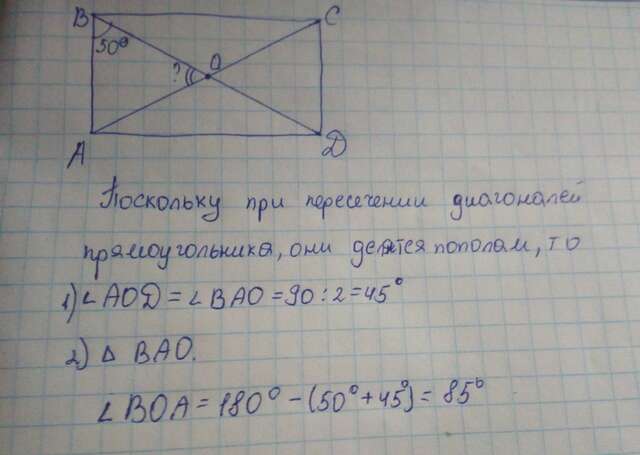 B C
50° ? O
A D
Поскольку при пересечении диагоналей
прямоугольника, они делятся пополам, то
1) ∠ AOD = ∠ BAO = 90 : 2 = 45°
2) △ BAO.
∠ BOA = 180° - (50° + 45°) = 85°